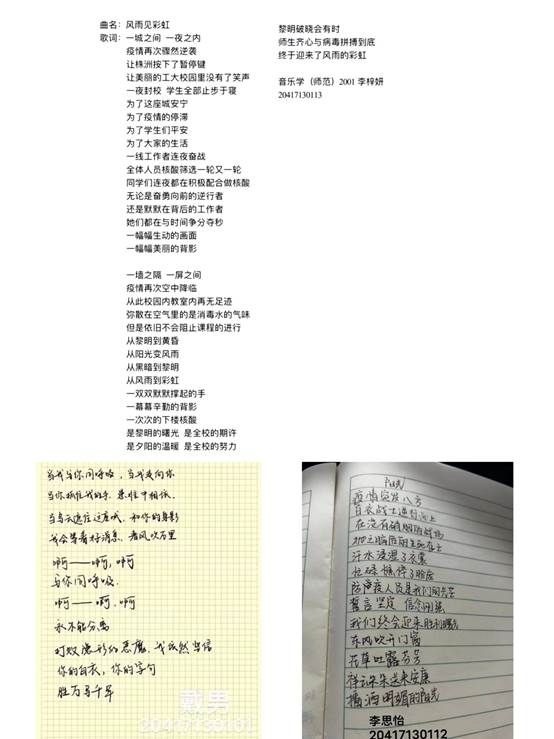 曲名：风雨见彩虹
歌词：一城之间 一夜之内
疫情再次骤然逆袭
让株洲按下了暂停键
让美丽的工大校园里没有了笑声
一夜封校 学生全部止步于寝
为了这座城安宁
为了疫情的停滞
为了学生们平安
为了大家的生活
一线工作者连夜奋战
全体人员核酸筛选一轮又一轮
同学们连夜都在积极配合做核酸
无论是奋勇向前的逆行者
还是默默在背后的工作者
她们都在与时间争分夺秒
一幅幅生动的画面
一幅幅美丽的背影
一墙之隔 一屏之间
疫情再次空中降临
从此校园内教室内再无足迹
弥散在空气里的是消毒水的气味
但是依旧不会阻止课程的进行
从黎明到黄昏
从阳光变风雨
从黑暗到黎明
从风雨到彩虹
一双双默默撑起的手
一幕幕辛勤的背影
一次次的下楼核酸
是黎明的曙光 是全校的期许
是夕阳的温暖 是全校的努力
黎明破晓会有时
师生齐心与病毒拼搏到底
终于迎来了风雨的彩虹
音乐学（师范）2001 李梓妍
20417130113
当我与你同呼吸，当我走向你
当你抓住我的手
当乌云遮住这座城，和你的身影
我会等着好消息，春风吹万里
啊——啊，啊
与你同呼吸
啊——啊，啊
永不能分离
打败隐形的恶魔，我依然坚信
你的白衣，你的字句
胜万马千军
戴男
20417130101
疫情突发八方
白衣战士逆行而上
在没有硝烟的战场
汗水浸湿了衣裳
口罩憔悴了脸庞
防控疫人员是我们的先茫
誓言坚定 信念刚强
我们终会迎来胜利曙光
东风吹开门窗
花草吐露芬芳
祥云朵朵送来安康
播洒明媚的阳光
李思怡
20417130112